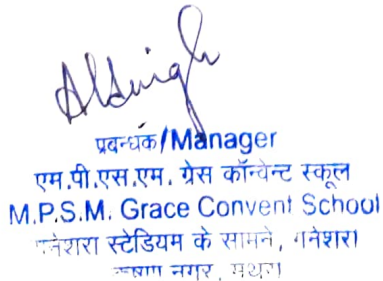 प्रबन्धक/Manager
एम.पी.एस.एम. ग्रेस कॉन्वेन्ट स्कूल
M.P.S.M. Grace Convent School
स्टेडियम के सामने, गनेशरा
नगर, मथुरा